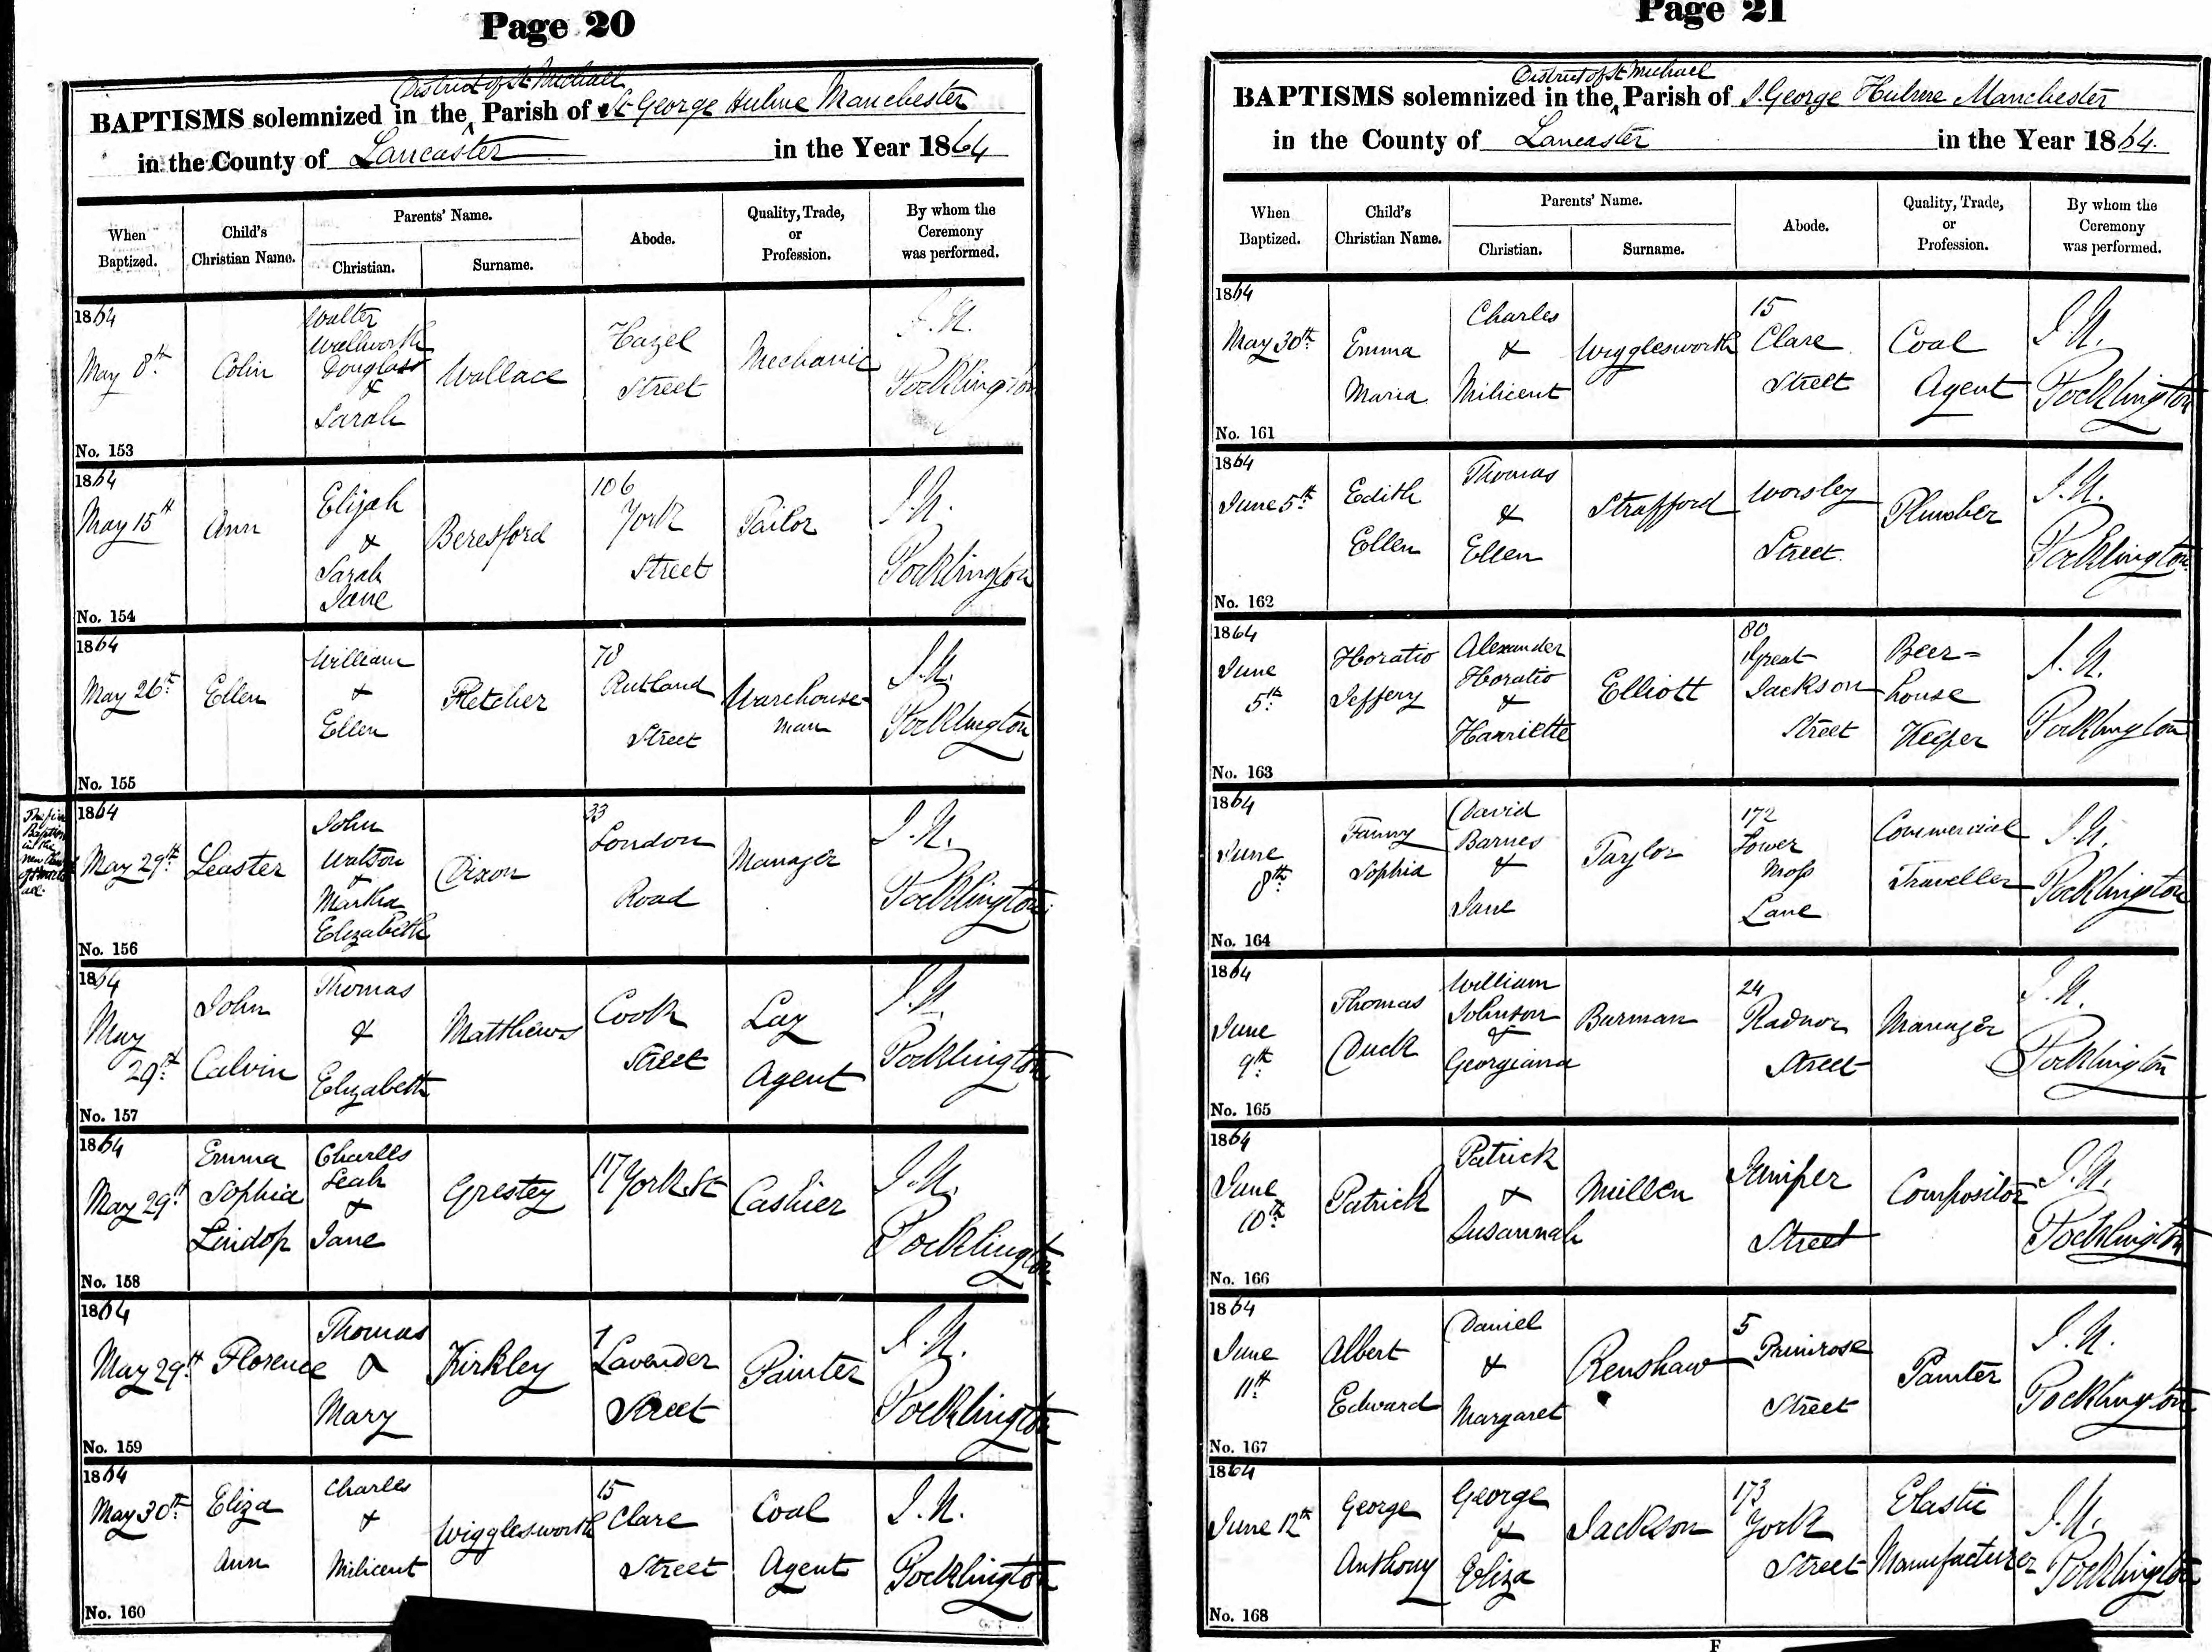 Page 20
District of St Michael
BAPTISMS solemnized in the Parish of St George Hulme Manchester
in the County of Lancaster in the Year 1864
When Baptized.
Child's Christian Name.
Parents' Name.
Christian.
Surname.
Abode.
Quality, Trade, or Profession.
By whom the Ceremony was performed.
1864
May 8th
Colin
Walter
Wallworth
Douglass
&
Sarah
Wallace
Hazel
Street
Mechanic
J. N.
Pocklington
No. 153
1864
May 15th
Ann
Elijah
&
Sarah
Jane
Beresford
106
York
Street
Tailor
J. N.
Pocklington
No. 154
1864
May 26th
Ellen
William
&
Ellen
Fletcher
78
Rutland
Street
Warehouse-
man
J. N.
Pocklington
No. 155
Baptism
in the
1864
May 29th
Leaster
John
Watson
&
Martha
Elizabeth
Dixon
33
London
Road
Manager
J. N.
Pocklington
No. 156
1864
May
29th
John
Calvin
Thomas
&
Elizabeth
Matthews
Cook
Street
Lay
Agent
J. N.
Pocklington
No. 157
1864
May 29th
Emma
Sophia
Lindop
Charles
Leah
&
Jane
Grestey
117 York St
Cashier
J. N.
Pocklington
No. 158
1864
May 29th
Florence
Thomas
&
Mary
Kirkley
1
Lavender
Street
Painter
J. N.
Pocklington
No. 159
1864
May 30th
Eliza
Ann
Charles
&
Milicent
Wigglesworth
15
Clare
Street
Coal
Agent
J. N.
Pocklington
No. 160
Page 21
District of St Michael
BAPTISMS solemnized in the Parish of S. George Hulme Manchester
in the County of Lancaster in the Year 1864.
When Baptized.
Child's Christian Name.
Parents' Name.
Christian.
Surname.
Abode.
Quality, Trade, or Profession.
By whom the Ceremony was performed.
1864
May 30th
Emma
Maria
Charles
&
Milicent
Wigglesworth
15
Clare
Street
Coal
Agent
J. N.
Pocklington
No. 161
1864
June 5th
Edith
Ellen
Thomas
&
Ellen
Strafford
Worsley
Street
Plumber
J. N.
Pocklington
No. 162
1864
June
5th
Horatio
Jeffery
Alexander
Horatio
&
Harriette
Elliott
80
Great
Jackson
Street
Beer=
house
Keeper
J. N.
Pocklington
No. 163
1864
June
8th
Fanny
Sophia
David
Barnes
&
Jane
Taylor
172
Lower
Moss
Lane
Commercial
Traveller
J. N.
Pocklington
No. 164
1864
June
9th
Thomas
Duck
William
Johnson
&
Georgiana
Burman
24
Radnor
Street
Manager
J. N.
Pocklington
No. 165
1864
June
10th
Patrick
Patrick
&
Susannah
Millen
Juniper
Street
Compositor
J. N.
Pocklington
No. 166
1864
June
11th
Albert
Edward
Daniel
&
Margaret
Renshaw
5
Primrose
Street
Painter
J. N.
Pocklington
No. 167
1864
June 12th
George
Anthony
George
&
Eliza
Jackson
173
York
Street
Elastic
Manufacturer
J. N.
Pocklington
No. 168
F